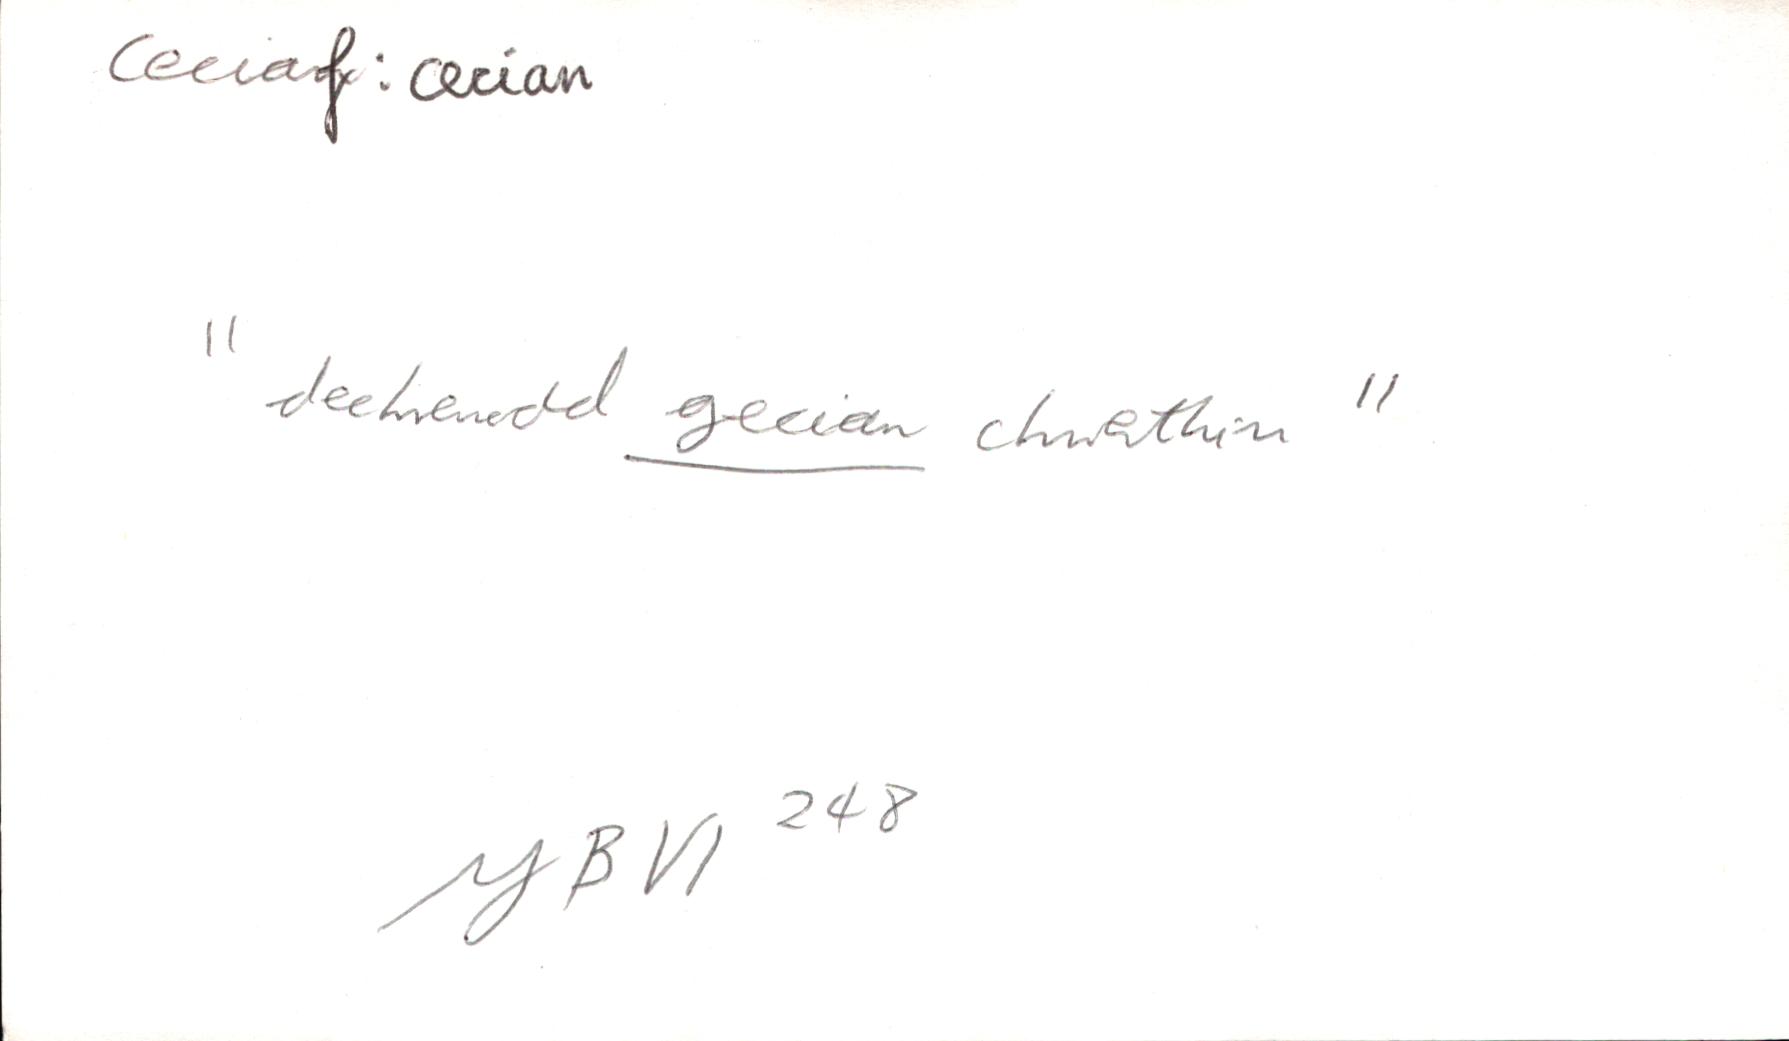 ceciaf: cecian
" dechreuodd gecian chwerthin "
YB VI 248